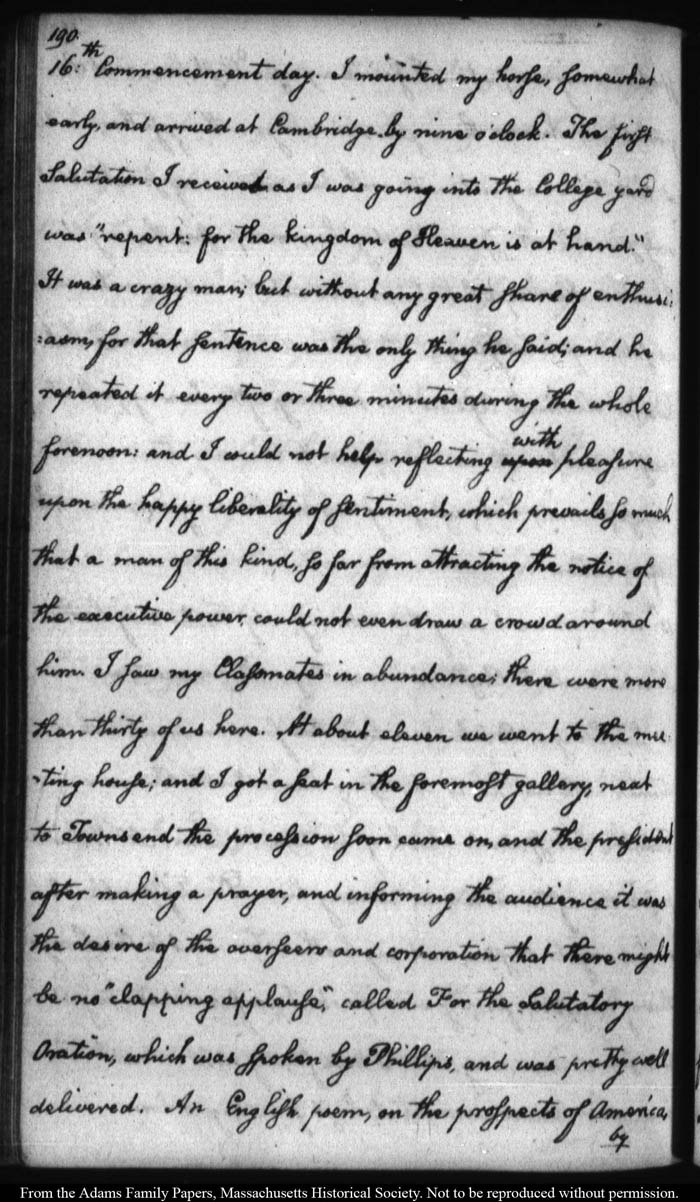 190.
16.th Commencement day. I mounted my horse, somewhat
early, and arrived at Cambridge by nine o'clock. The first
Salutation I received as I was going into the College yard
was "repent: for the kingdom of Heaven is at hand."
It was a crazy man; but without any great share of enthusi:
:asm, for that sentence was the only thing he said; and he
repeated it every two or three minutes during the whole
forenoon: and I could not help reflecting upon with pleasure
upon the happy liberality of sentiment, which prevails so much
that a man of this kind, so far from attracting the notice of
the executive power, could not even draw a crowd around
him. I saw my Classmates in abundance; there were more
than thirty of us here. At about eleven we went to the mee:
:ting house; and I got a seat in the foremost gallery, next
to Townsend the procession soon came on, and the president
after making a prayer, and informing the audience it was
the desire of the overseers and corporation that there might
be no "clapping applause", called For the Salutatory
Oration, which was spoken by Phillips, and was pretty well
delivered. An English poem, on the prospects of America,
by
From the Adams Family Papers, Massachusetts Historical Society. Not to be reproduced without permission.